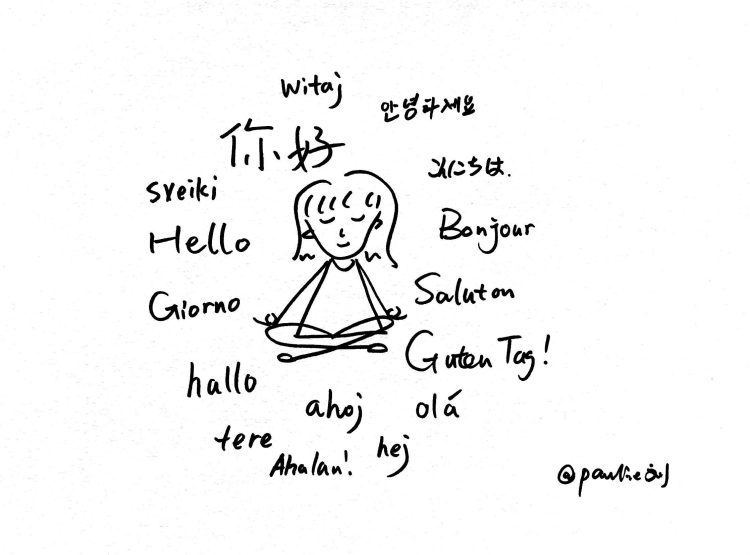 Witaj
안녕하세요
你好
こんにちは.
sveiki
Hello
Bonjour
Giorno
Saluton
Guten Tag!
hallo
ahoj
olá
tere
Ahalan!
hej